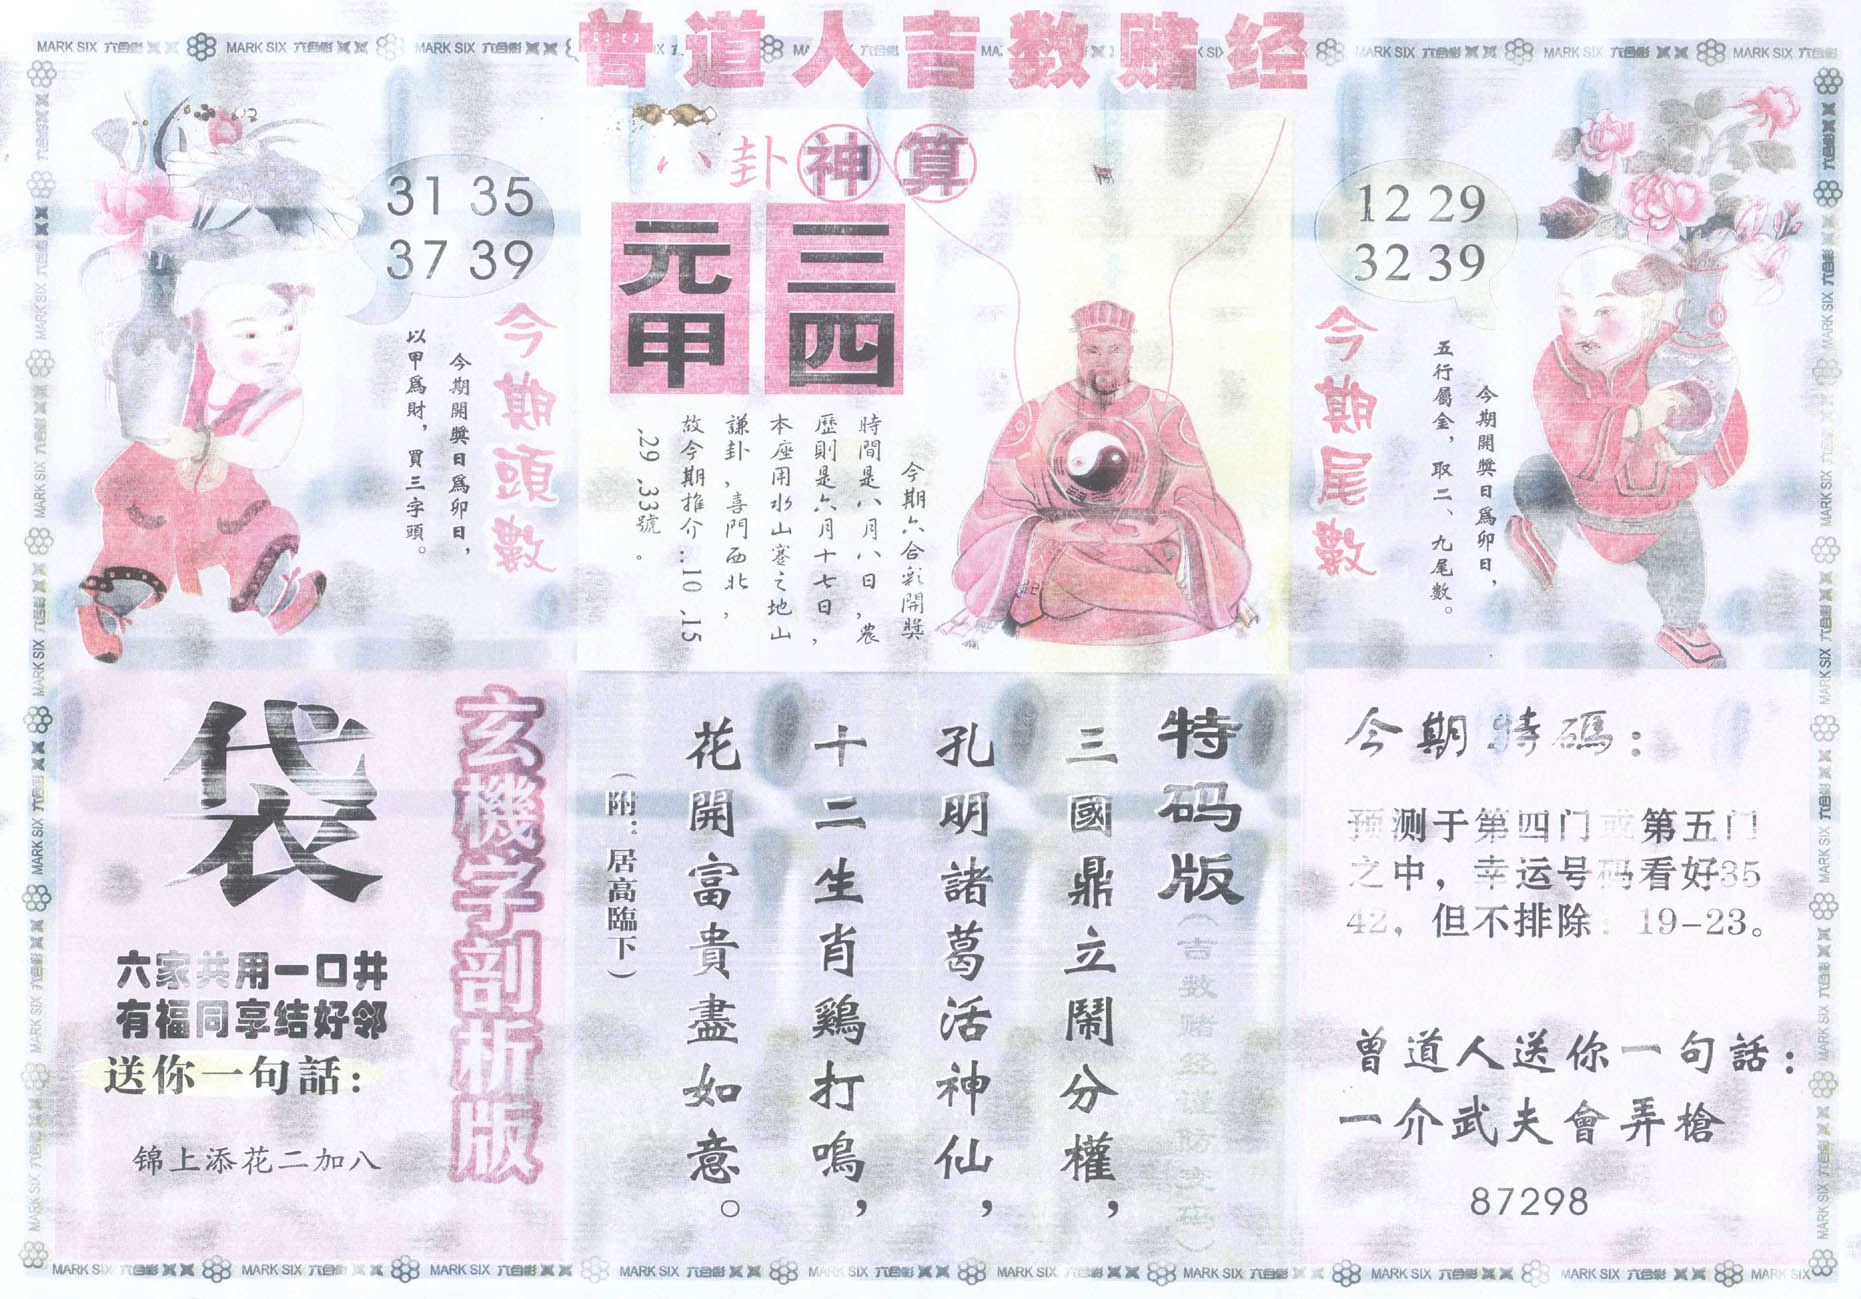 曾道人吉数赌经
MARK SIX 六合彩
八卦神算
元甲
三四
31 35
37 39
今期頭數
今期開獎日爲卯日，
以甲爲財，買三字頭。
今期六合彩開獎
時間是八月八日，農
歷則是六月十七日，
本座用水山蹇之地山
謙卦，喜門西北，
故今期推介：10.15
.29.33號。
12 29
32 39
今期尾數
今期開獎日爲卯日，
五行屬金，取二、九尾數。
玄機字剖析版
袋
六家共用一口井
有福同享结好邻
送你一句話：
锦上添花二加八
特码版
（吉数赌经谨防变码）
三國鼎立鬧分權，
孔明諸葛活神仙，
十二生肖鷄打鳴，
花開富貴盡如意。
（附：居高臨下）
今期特碼：
预测于第四门或第五门
之中，幸运号码看好35
42，但不排除：19-23。
曾道人送你一句話：
一介武夫會弄槍
87298